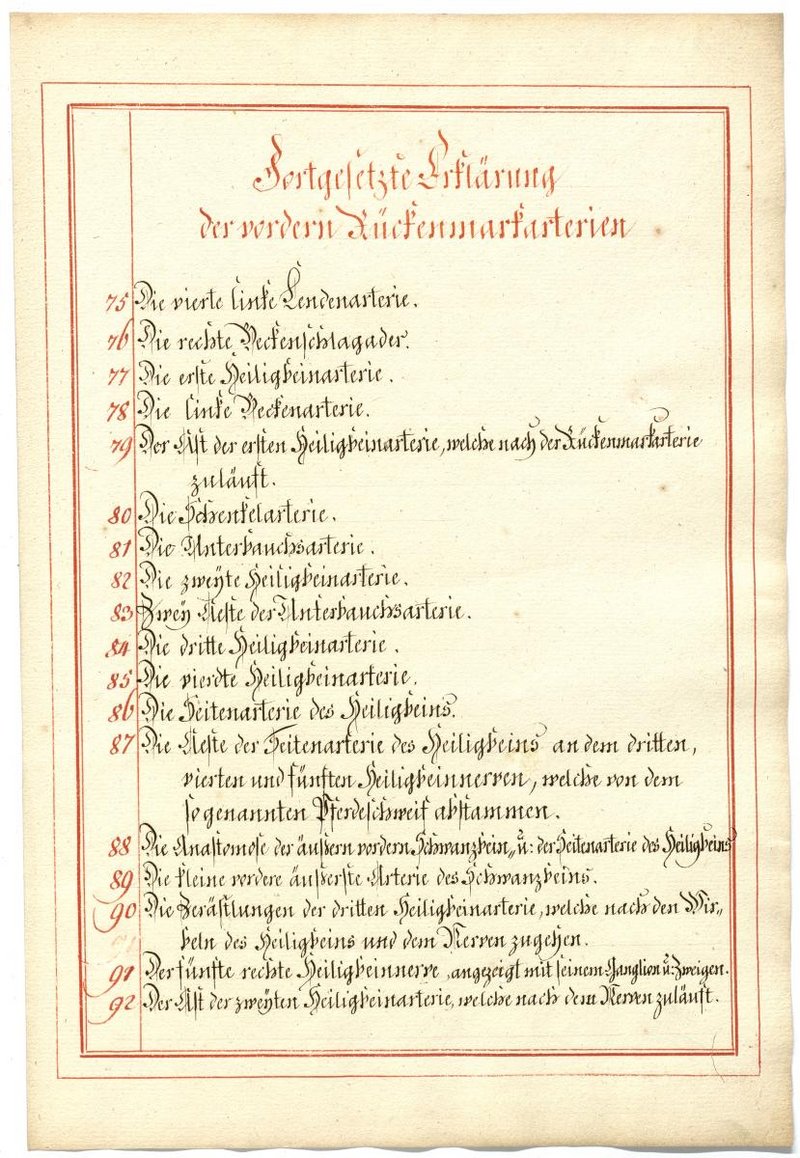 Fortgesetzte Erklärung
der vordern Rückenmarkarterien
75 Die vierte linke Lendenarterie.
76 Die rechte Beckenschlagader.
77 Die erste Heiligbeinarterie.
78 Die linke Beckenarterie.
79 Der Ast der ersten Heiligbeinarterie, welche nach der Rückenmarkarterie
zuläuft.
80 Die Schenkelarterie.
81 Die Unterbauchsarterie.
82 Die zweÿte Heiligbeinarterie.
83 Zweÿ Aeste der Unterbauchsarterie.
84 Die dritte Heiligbeinarterie.
85 Die vierdte Heiligbeinarterie.
86 Die Seitenarterie des Heiligbeins.
87 Die Aeste der Seitenarterie des Heiligbeins an dem dritten,
vierten und fünften Heiligbeinnerven, welche von dem
sogenannten Pferdeschweif abstammen.
88 Die Anastomose der äußern vordern Schwanzbein„ u: der Seitenarterie des Heiligbeins
89 Die kleine vordere äußerste Arterie des Schwanzbeins.
90 Die Zerästlungen der dritten Heiligbeinarterie, welche nach den Wir„
beln des Heiligbeins und dem Nerven zugehen.
91 Der fünfte rechte Heiligbeinnerve, angezeigt mit seinem Ganglion u: Zweigen.
92 Der Ast der zweÿten Heiligbeinarterie, welche nach dem Nerven zuläuft.